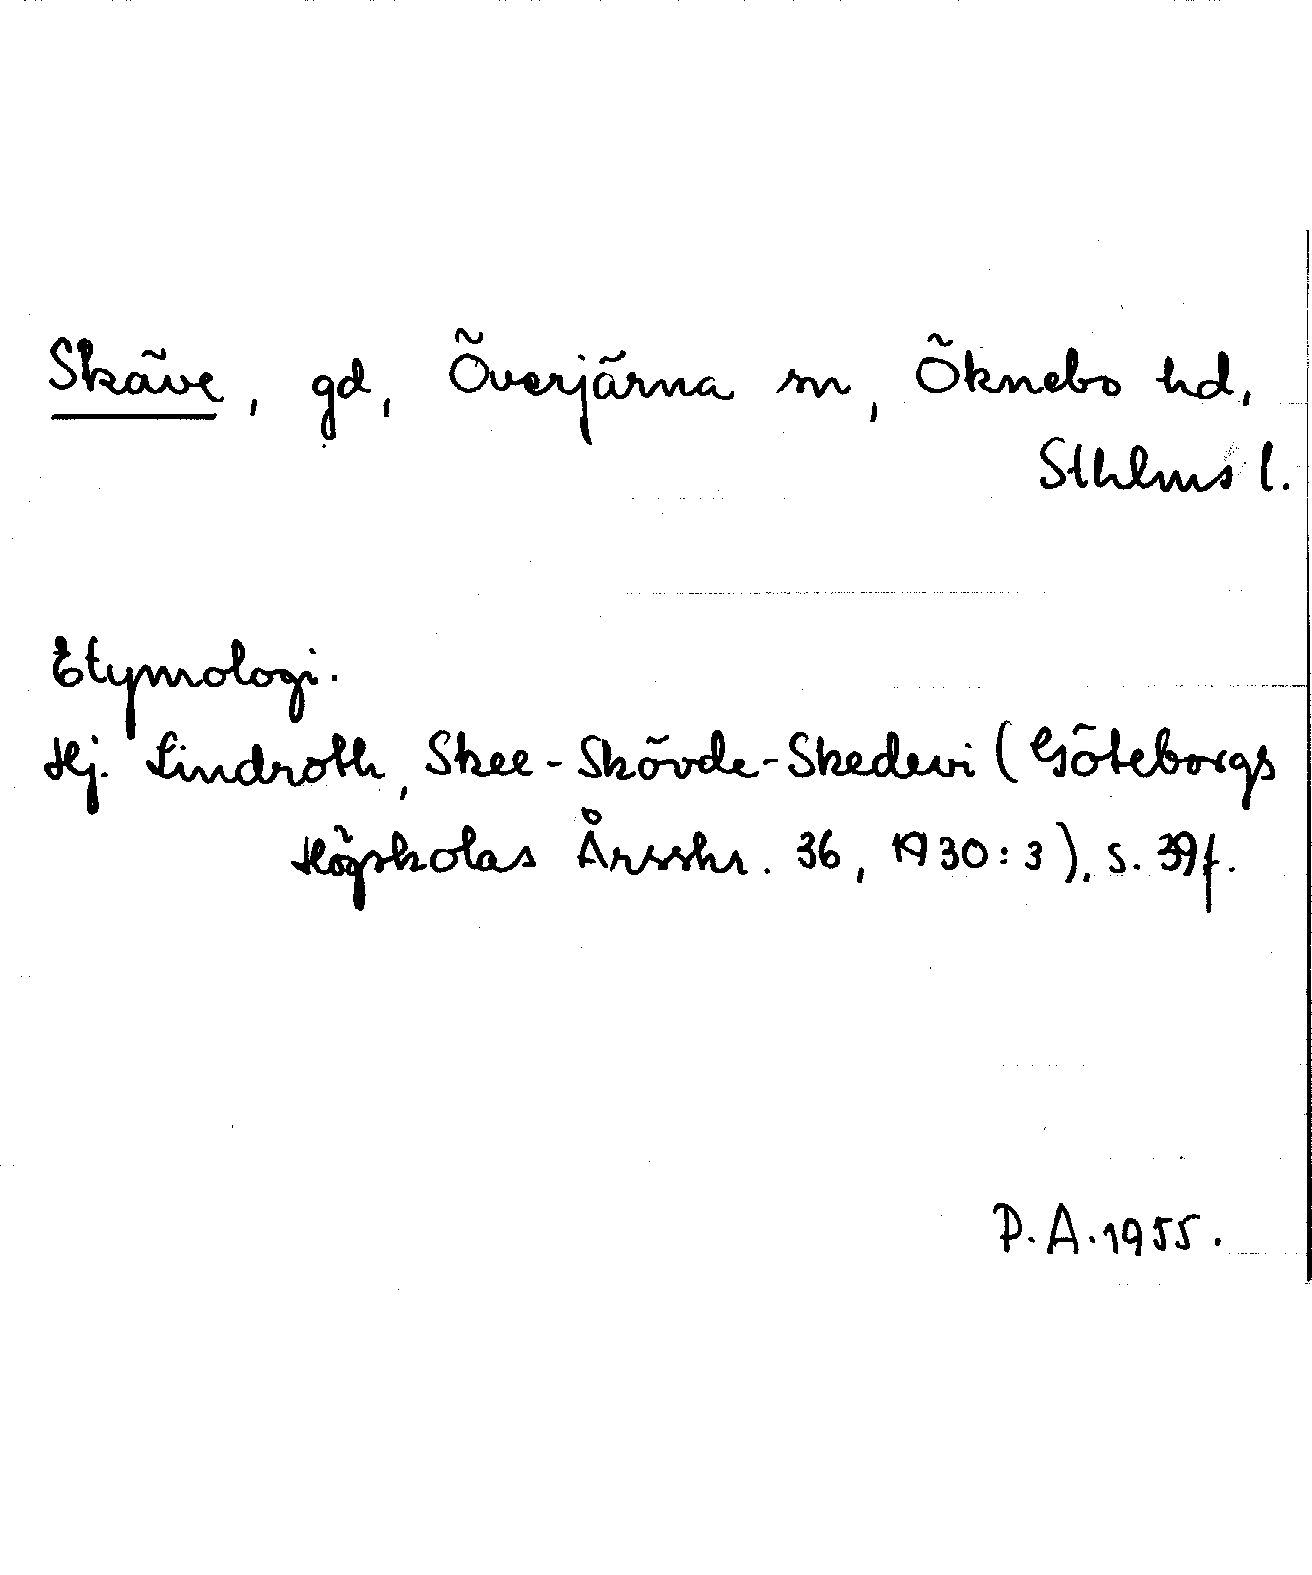 Skäve, gd, Överjärna sn, Öknebo hd,
Sthlms l.
Etymologi.
Hj. Lindroth, Skee-Skövde-Skedevi (Göteborgs
Högskolas Årsskr. 36, 1930:3), s. 39f.
P.A. 1955.